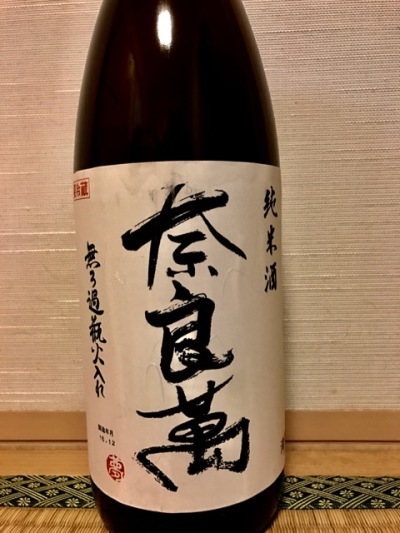 純米酒
奈良萬
無ろ過瓶火入れ
要冷蔵
製造年月
夢